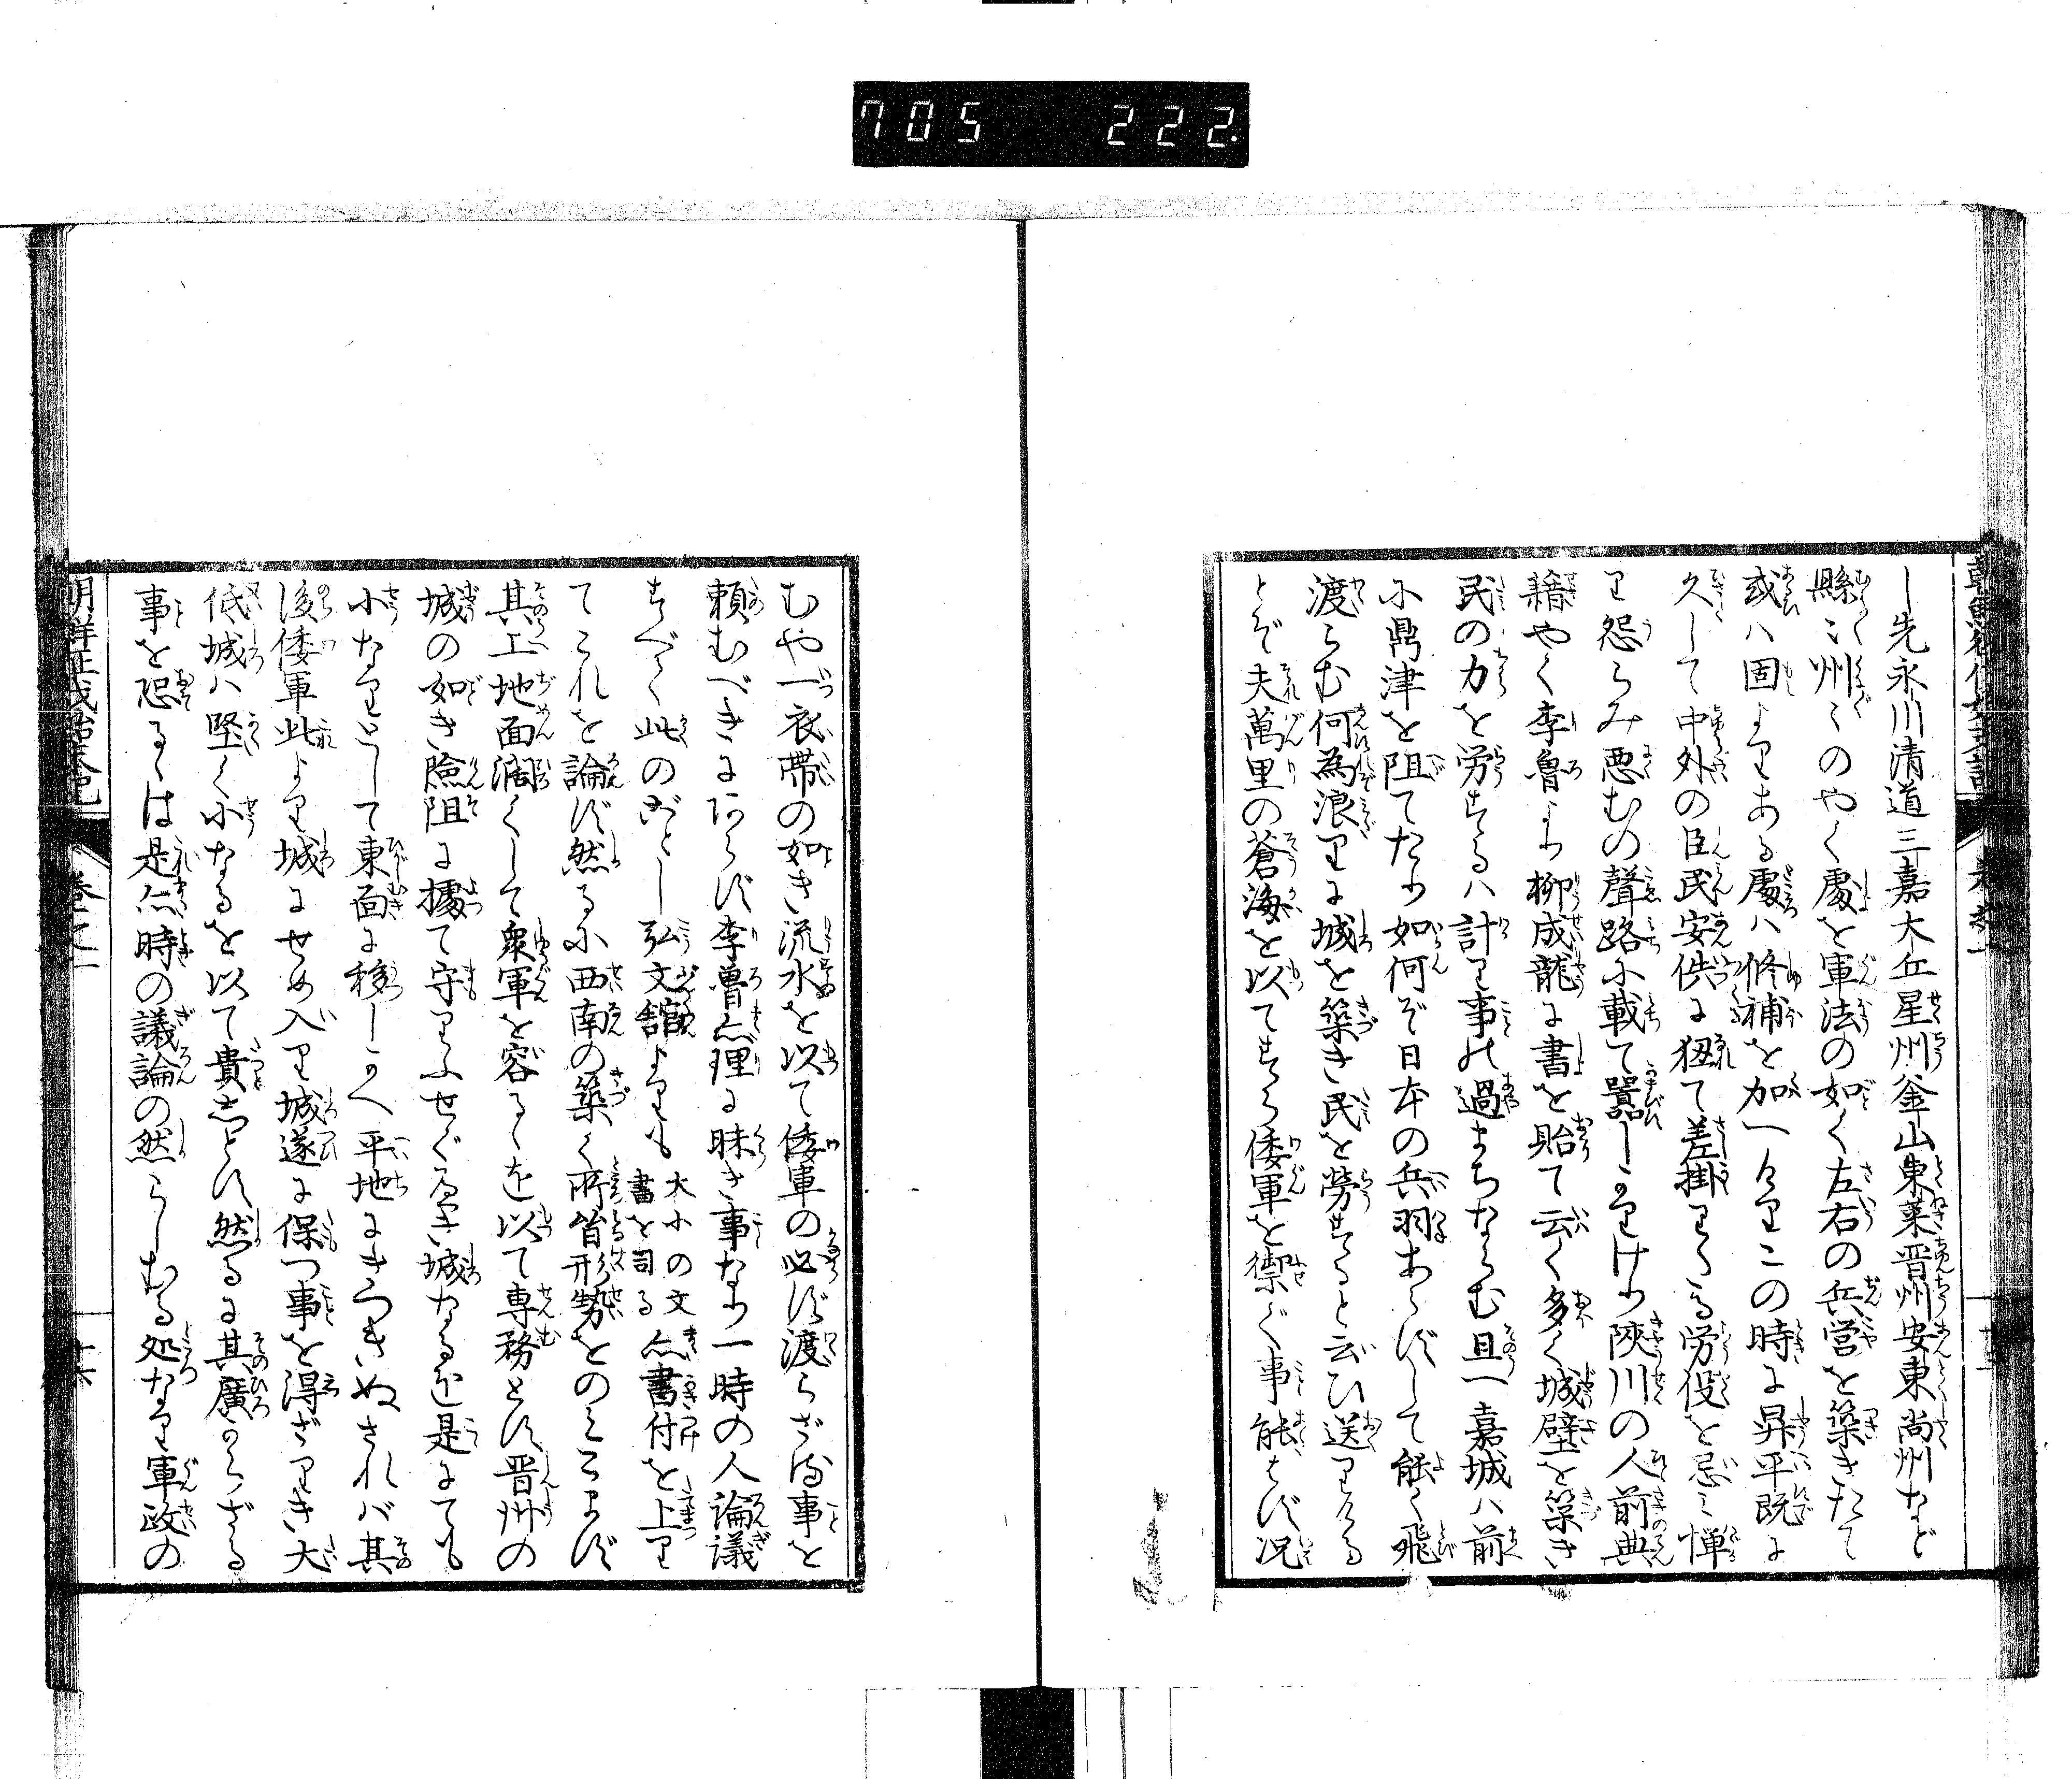 705 222
し先永川清道三嘉大丘星州釜山東莱晋州安東尚州など
縣〻州〻のやく處を軍法の如く左右の兵営を築きたて
或ハ固よりある處ハ修補を加へけりこの時に昇平既に
久しして中外の臣民安佚に狃て差掛りくる労役を忌ミ憚
り怨らみ悪むの聲路に載て囂しかりけり陜川の人前典
籍やく李魯より柳成龍に書を貽て云く多く城壁を築き
民の力を労するハ計り事の過まちならむ且一嘉城ハ前
に鼎津を阻てたり如何ぞ日本の兵羽あらずして能く飛
渡らむ何為浪りに城を築き民を勞すると云ひ送りける
とぞ夫萬里の蒼海を以てすら倭軍を禦ぐ事能はず况
むや一衣帶の如き流水を以て倭軍の必ず渡らざる事を
頼むべきにあらず李魯亦理に昧き事なり一時の人論議
すべく此のごとし弘文館よりも
大小の文
書を司る
亦書付を上り
てこれを論ず然るに西南の築く所皆形勢をのミこまず
其上地面濶くして衆軍を容るゝを以て専務とす晋州の
城の如き險阻に據て守りふせぐ可き城なるを是にても
小なりとして東面に移しかへ平地にきづきぬされバ其
後倭軍此より城にせめ入り城遂に保つ事を得ざりき大
低城ハ堅く小なるを以て貴しとす然るに其廣からざる
事を恐るゝは是亦時の議論の然らしむる処なり軍政の
巻之一
十六